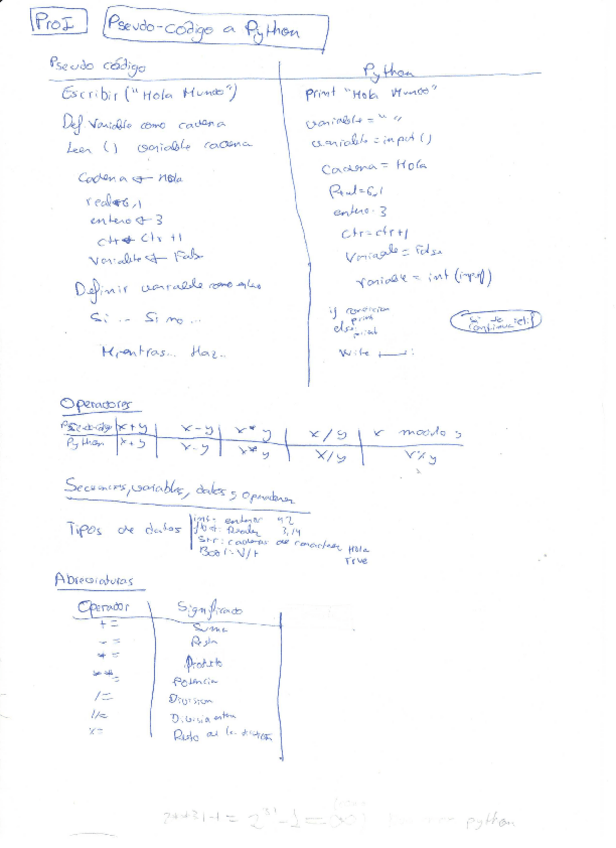 ProI Pseudo-código a Python
Pseudo código Python
Escribir ("Hola Mundo") print "Hola Mundo"
Def Variable como cadena variable = " "
Leer () variable cadena variable = input ()
Cadena ← Hola Cadena = Hola
real ← 6,1 Real = 6,1
entero ← 3 entero = 3
ctr ← ctr +1 ctr = ctr+1
Variable ← Fals Variable = False
Definir variable como variable = int (input)
Si ... Si no ... if condicion
print
else
print
Si te continua elif
Mientras... Haz... :
Operadores
Pseudocódigo x+y x-y x* y x/y x modulo y
Python x+y x-y x*y x/y x%y
Secuencias, variables, datos y operadores
Tipos de datos int: enteros 42
float: Reales 3,14
Str: cadenas de caracteres Hola
Bool: V/F True
Abreviaturas
Operador Significado
+= Suma
-= Resta
*= Producto
**= Potencia
/= Division
Division entera
Resto de la
2^31-1 =
python